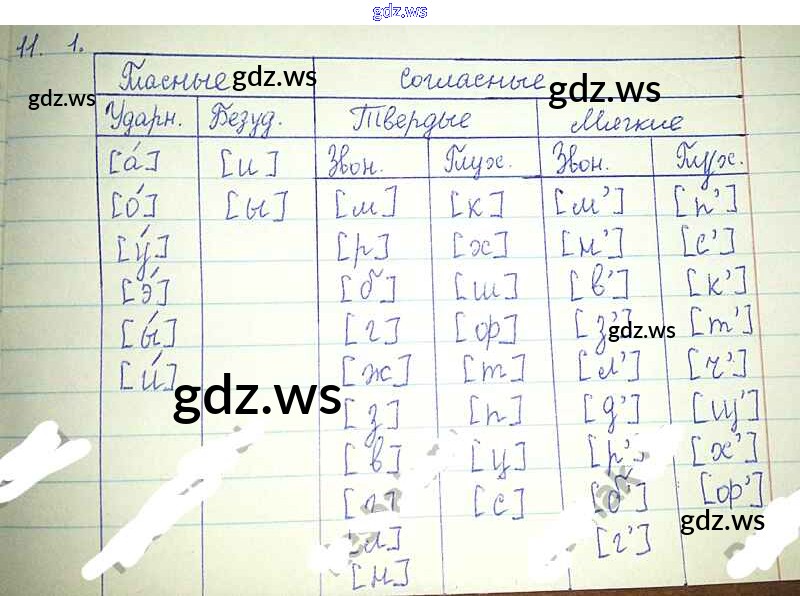 gdz.ws
11. 1.
Гласные gdz.ws Согласные gdz.ws
gdz.ws
Ударн. Безуд. Твердые Мягкие
[а́] [и] Звон. Глух. Звон. Глух.
[о́] [ы] [м] [к] [м’] [п’]
[у́] [р] [х] [н’] [с’]
[э́] [б] [ш] [в’] [к’]
[ы́] [г] [ф] [з’] gdz.ws [т’]
[и́] gdz.ws [ж] [т] [л’] [ч’]
[з] [п] [д’] [щ’]
[в] [ц] [р’] [х’]
[с] [б’] [ф’]
gdz.ws
[л] [г’]
[н]